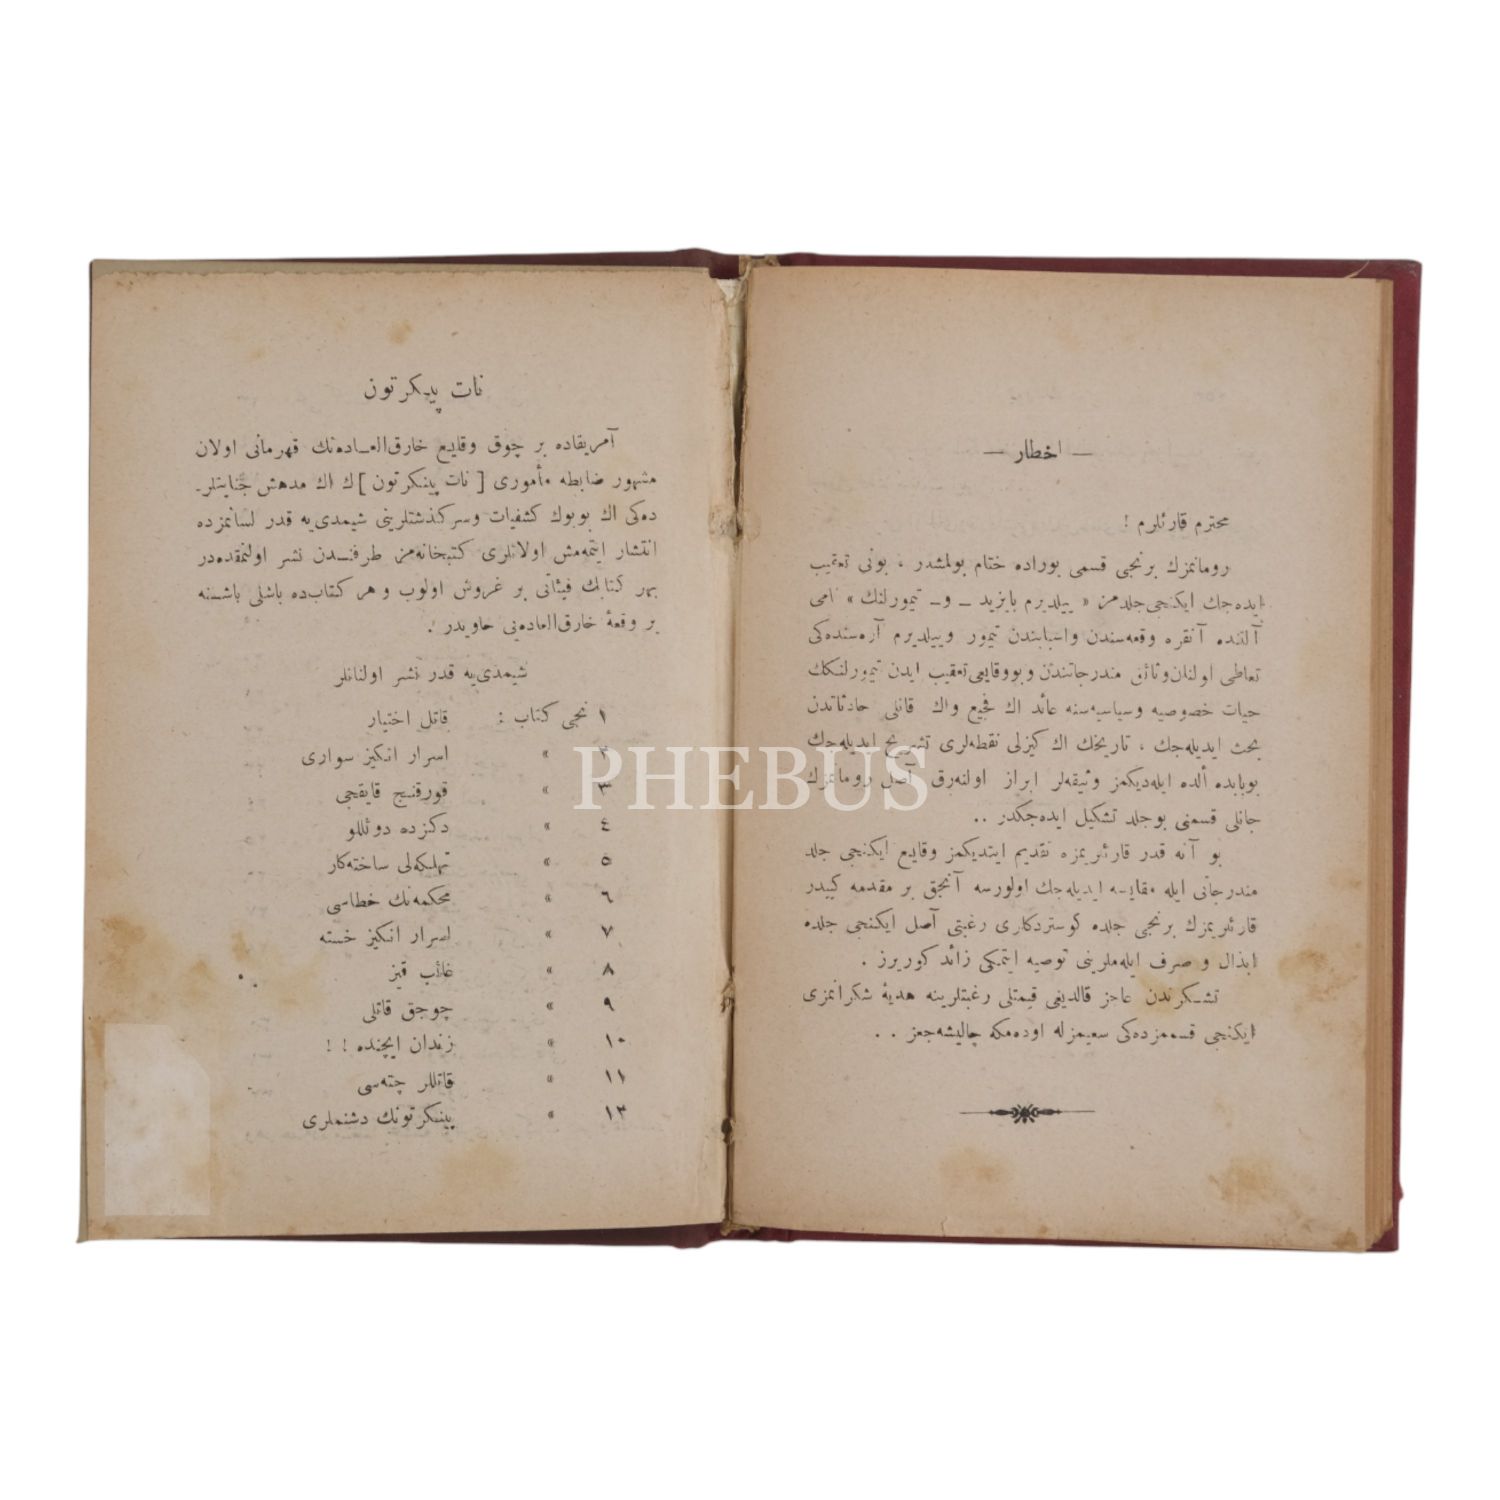 — اخطار —
محترم قارئلرم !
رومانمزك برنجی قسمی بوراده ختام بولمشدر ، بونی تعقیب
ایده‌جك ایكنجی جلدمز « ییلدیرم بایزید — و — تیمورلنك » نامی
آلتنده آنقره وقعه‌سندن واسبابندن تیمور وییلدیرم آره‌سنده‌كی
تعاطی اولنان وثائق مندرجاتندن و بووقایعی تعقیب ایدن تیمورلنكك
حیات خصوصیه وسیاسیه‌سنه عائد اك فجیع واك قانلی حادثاتدن
بحث ایدیله‌جك ، تاریخك اك كیزلی نقطه‌لری تشریح ایدیله‌جك
بوبابده ألده ایله‌دیكمز وثیقه‌لر ابراز اولنه‌رق آصل رومانمزك
جانلی قسمنی بوجلد تشكیل ایده‌جكدر ..
بو آنه قدر قارئلریمزه تقدیم ایتدیكمز وقایع ایكنجی جلد
مندرجاتی ایله مقایسه ایدیله‌جك اولورسه آنجق بر مقدمه كبیدر
قارئلریمزك برنجی جلده كوستردكلری رغبتی آصل ایكنجی جلده
ابذال و صرف ایله‌ملرینی توصیه ایتمكی زائد كوریرز .
تشكرندن عاجز قالدیغی قیمتلی رغبتلرینه هدیهٔ شكرانمزی
ایكنجی قسممزده‌كی سعیمزله اوده‌مكه چالیشه‌جغز . .
نات پینكرتون
آمریقاده بر چوق وقایع خارق‌العاده‌نك قهرمانی اولان
مشهور ضابطه مأموری [ نات پینكرتون ] ك اك مدهش جنایتلر-
ده‌كی اك بویوك كشفیات وسركذشتلرینی شیمدی‌یه قدر لسانمزده
انتشار ایتمه‌مش اولانلری كتبخانه‌مز طرفندن نشر اولنمقده‌در
بهر كتابك فیئاتی بر غروش اولوب و هر كتاب‌ده باشلی باشنه
بر وقعهٔ خارق‌العاده‌یی حاویدر .
شیمدی‌یه قدر نشر اولنانلر
١ نجی كتاب : قاتل اختیار
٢ » اسرار انكیز سواری
٣ » قورقنج قایقجی
٤ » دكزده دوئللو
٥ » تهلكه‌لی ساخته‌كار
٦ » محكمه‌نك خطاسی
٧ » اسرار انكیز خسته
٨ » غائب قیز
٩ » چوجق قاتلی
١٠ » زندان ایچنده ! !
١١ » قاتللر چته‌سی
١٣ » پینكرتونك دشنملری
PHEBUS